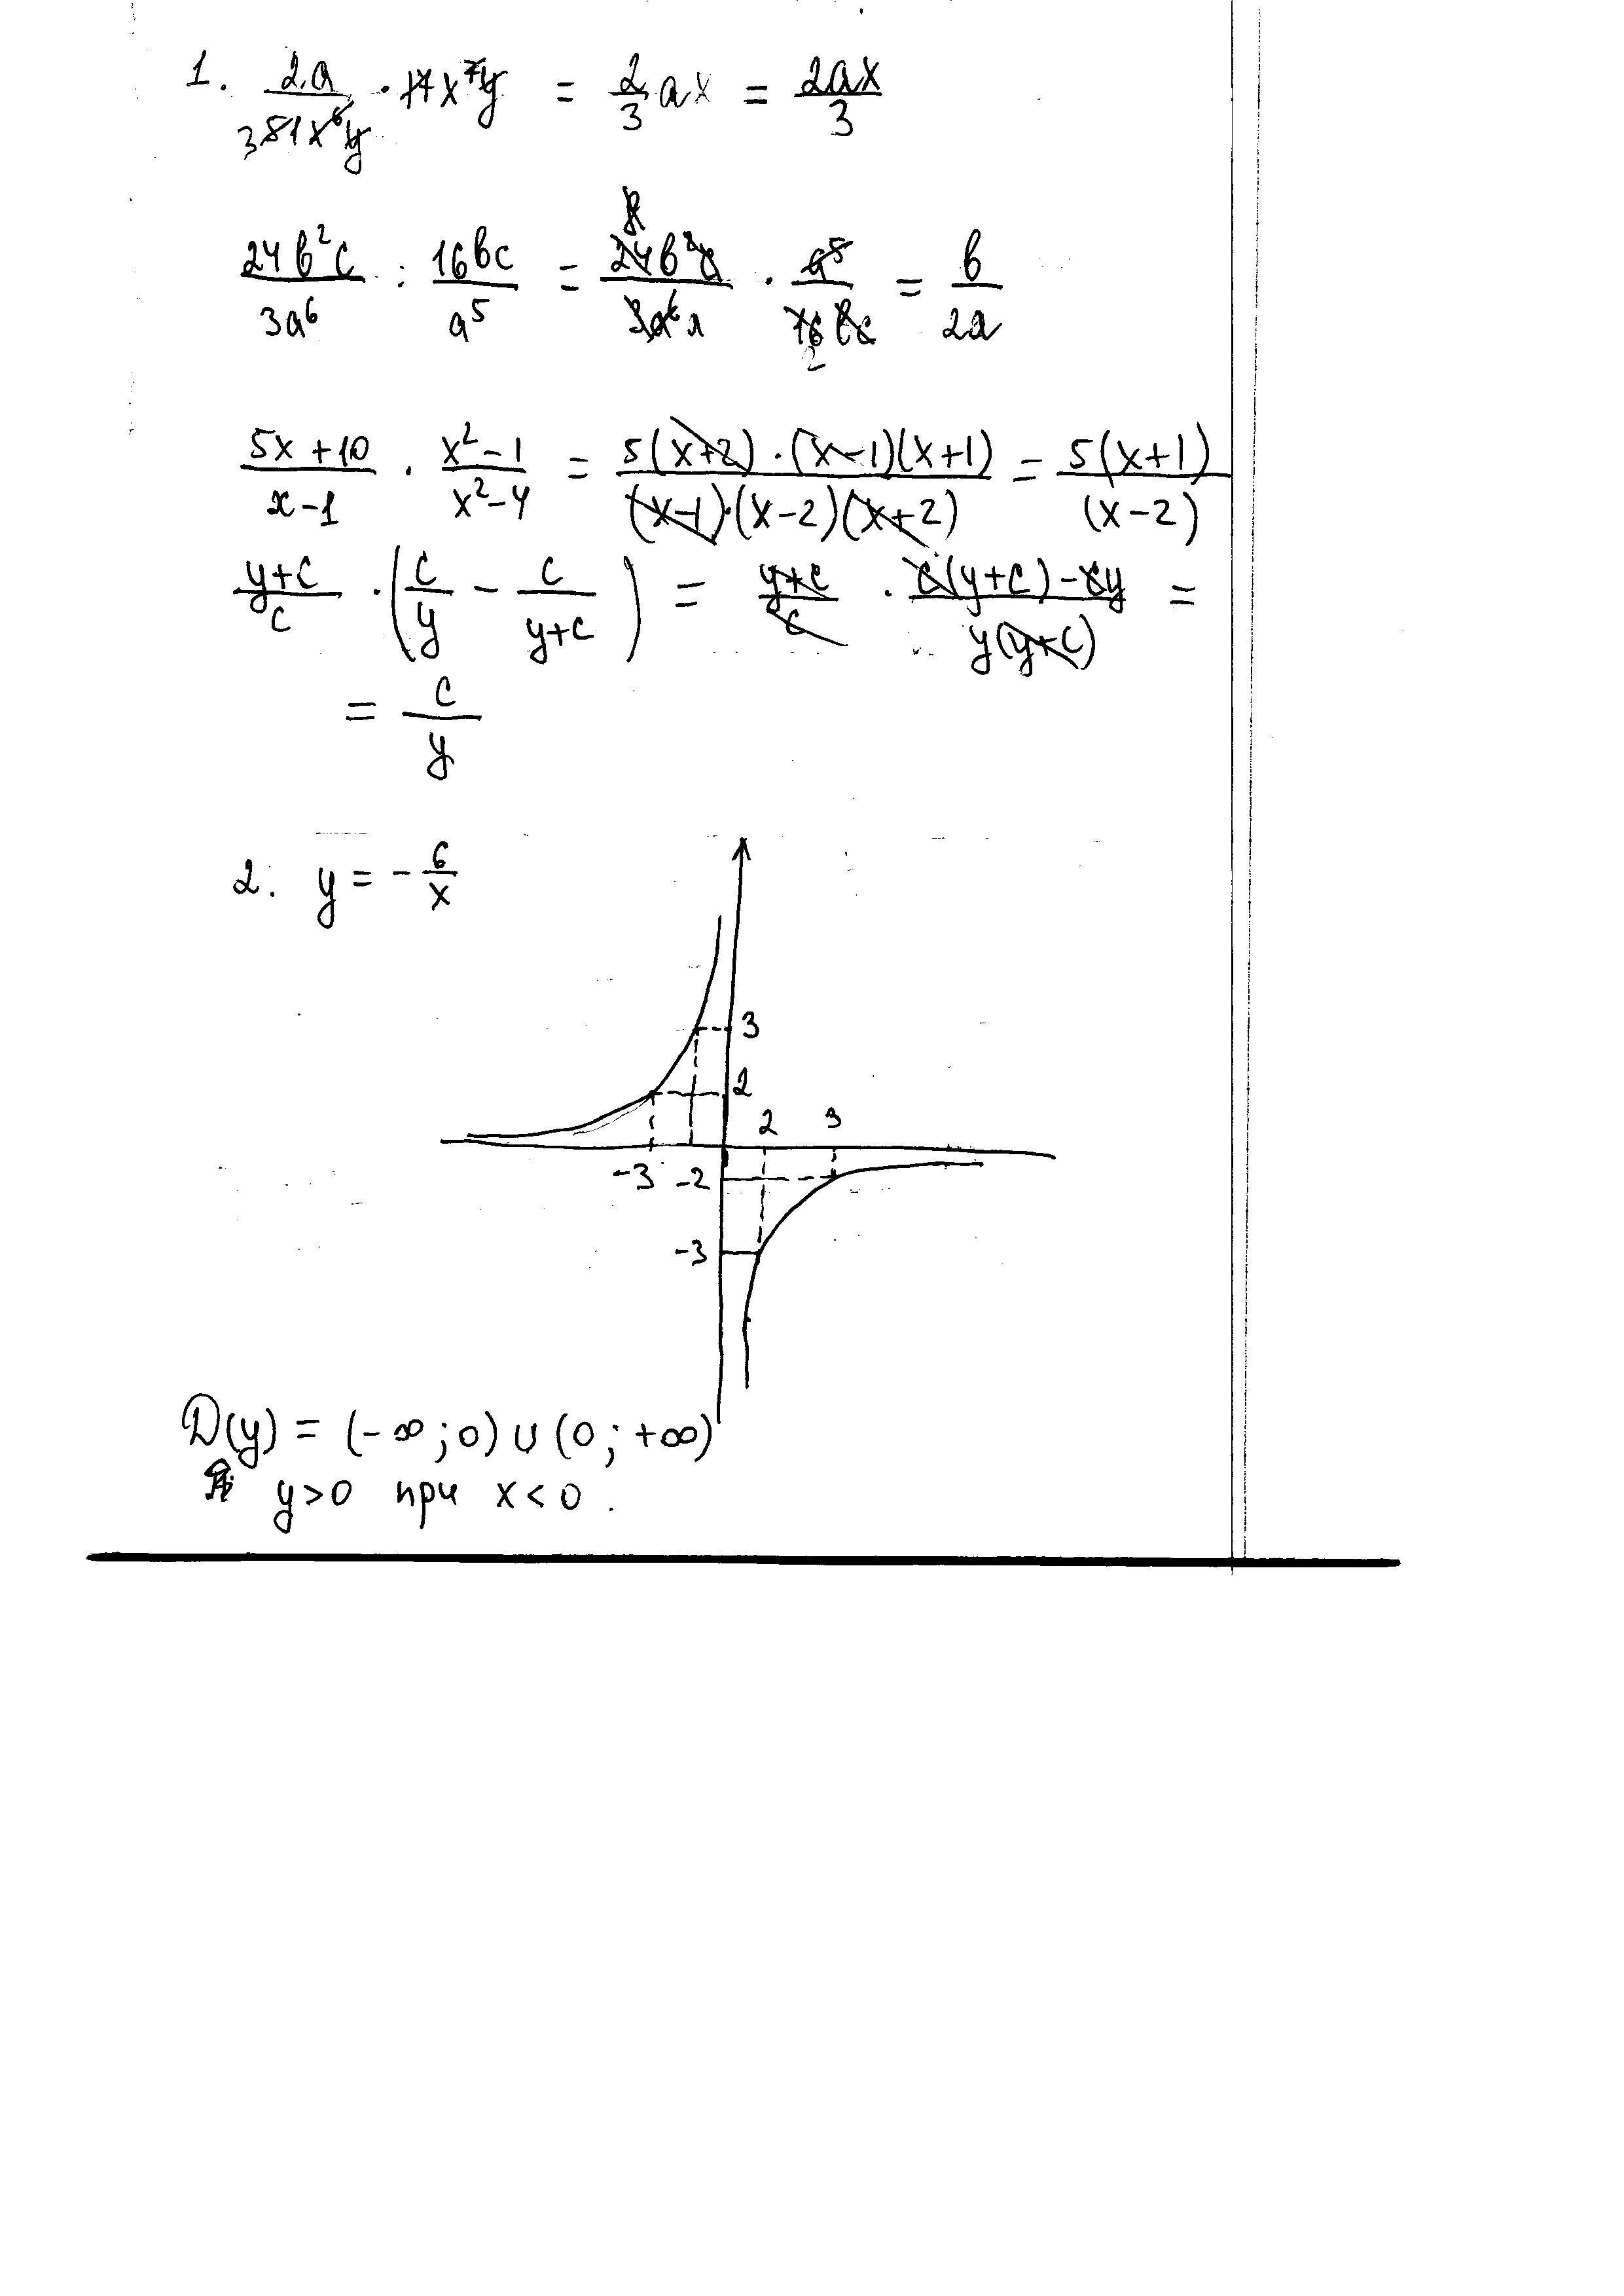 1. 2a/(3 81x⁶y) · 17x⁷y = 2/3 ax = 2ax/3
24b²c/3a⁶ : 16bc/a⁵ = 8 24b²c/3a⁶ · a⁵/16bc 2 = b/2a
(5x+10)/(x-1) · (x²-1)/(x²-4) = 5(x+2)·(x-1)(x+1)/(x-1)·(x-2)(x+2) = 5(x+1)/(x-2)
(y+c)/c · (c/y - c/(y+c)) = (y+c)/c · (c(y+c)-cy)/y(y+c) =
= c/y
2. y = -6/x
3
2
2 3
-3 -2
-3
D(y) = (-∞;0)∪(0;+∞)
y>0 при x<0.